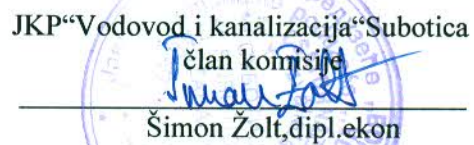 JKP“Vodovod i kanalizacija“Subotica
član komisije
Šimon Žolt,dipl.ekon